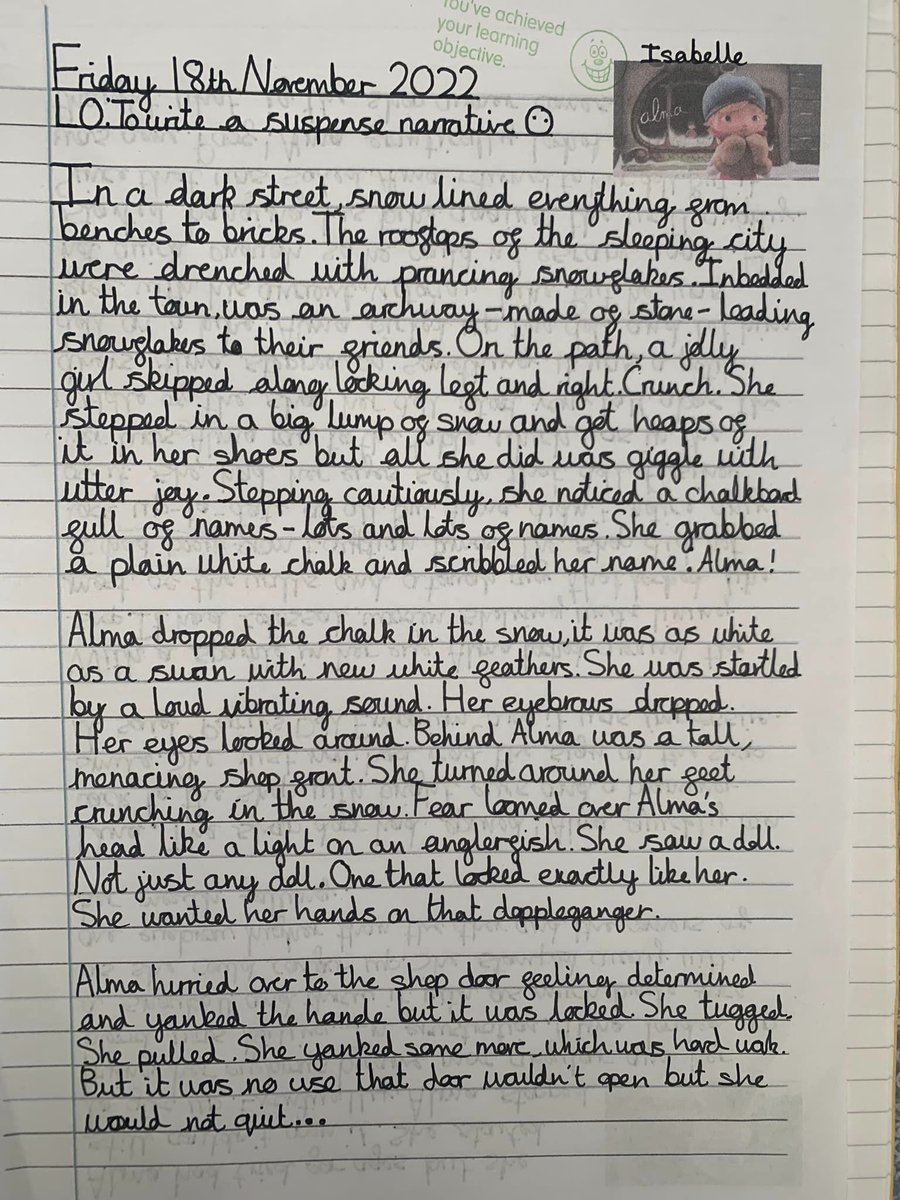 You've achieved
your learning
objective.
Isabelle
Friday 18th November 2022
LO:To write a suspense narrative
alma
In a dark street, snow lined everything from
benches to bricks. The rooftops of the sleeping city
were drenched with prancing snowflakes. Inbedded
in the town, was an archway - made of stone - leading
snowflakes to their friends. On the path, a jolly
girl skipped along looking left and right. Crunch. She
stepped in a big lump of snow and got heaps of
it in her shoes but all she did was giggle with
utter joy. Stepping cautiously, she noticed a chalkboard
full of names - lots and lots of names. She grabbed
a plain white chalk and scribbled her name. Alma!
Alma dropped the chalk in the snow, it was as white
as a swan with new white feathers. She was startled
by a loud vibrating sound. Her eyebrows dropped.
Her eyes looked around. Behind Alma was a tall,
menacing shop front. She turned around her feet
crunching in the snow. Fear loomed over Alma's
head like a light on an anglerfish. She saw a doll.
Not just any doll. One that looked exactly like her.
She wanted her hands on that doppleganger.
Alma hurried over to the shop door feeling determined
and yanked the handle but it was locked. She tugged.
She pulled. She yanked some more, which was hard work.
But it was no use that door wouldn't open but she
would not quit...